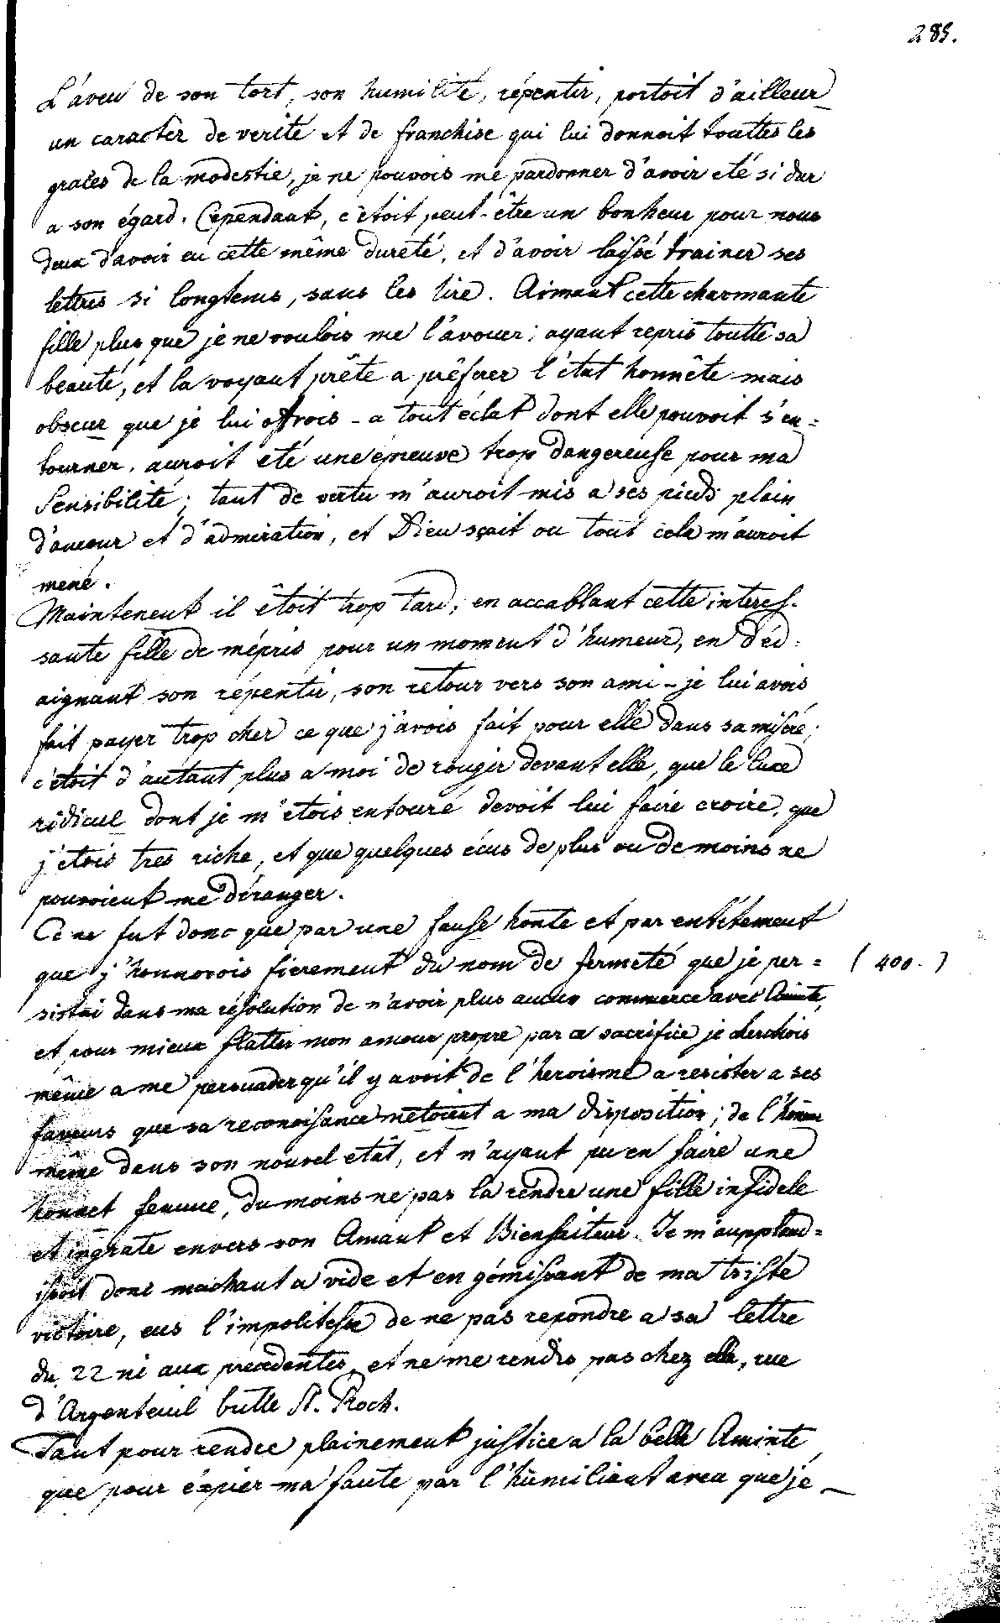 285.
L'aveu de son tort, son humilité, répentir, portoit d'ailleur
un caractèr de verité et de franchise qui lui donnoit touttes les
graces de la modestie, je ne pouvois me pardonner d'avoir eté si dur
a son égard. Cependant, c'étoit peut-être un bonheur pour nous
deux d'avoir eu cette même dureté, et d'avoir laissé trainer ses
lettres si longtems, sans les lire. Aimant cette charmante
fille plus que je ne voulois me l'avouer; ayant repris toutte sa
beauté, et la voyant prête a préferer l'état honnête mais
obscur que je lui offrois - a tout éclat dont elle pouvoit s'en=
tourner, auroit eté une épreuve trop dangereuse pour ma
Sensibilité; tant de vertu m'auroit mis a ses pieds plain
d'amour et d'admiration, et Dieu sçait ou tout cela m'auroit
mené.
Maintenent il êtoit trop tard; en accablant cette interes-
sante fille de mépris pour un moment d'humeur, en déd-
aignant son répentir, son retour vers son ami - je lui avois
fait payer trop cher ce que j'avois fait pour elle dans sa miseré;
c'étoit d'autant plus a moi de rougir devant elle, que le luxe
ridicul dont je m'étois entouré devoit lui faire croire, que
j'etois tres riche, et que quelques écus de plus ou de moins ne
pouvoient me déranger.
Ce ne fut donc que par une fause honte et par entêtement
que j'honnorois fierement du nom de fermeté que je per= (400.)
sistai dans ma résolution de n'avoir plus aucun commerce avec Aminte,
et pour mieux flatter mon amour propre par ce sacrifice je cherchois
même a me persuader qu'il y avoit de l'heroisme a resister a ses
faveurs que sa reconoisance metoient a ma disposition; de l'
même dans son nouvel etât, et n'ayant pu en faire une
honnet femme, du moins ne pas la rendre une fille infidele
et ingrate envers son Amant et Bienfaiteur. Je m'aupplaud=
issoit donc machant a vide et en gémissant de ma triste
victoire, eus l'impolitesse de ne pas repondre a sa lettre
du 22 ni aux precedentes, et ne me rendis pas chez elle, rue
d'Argenteuil butte St. Roch.
Tant pour rendre plainement justice a la belle Aminte
que pour éxpier ma faute par l'humiliant aveu que je